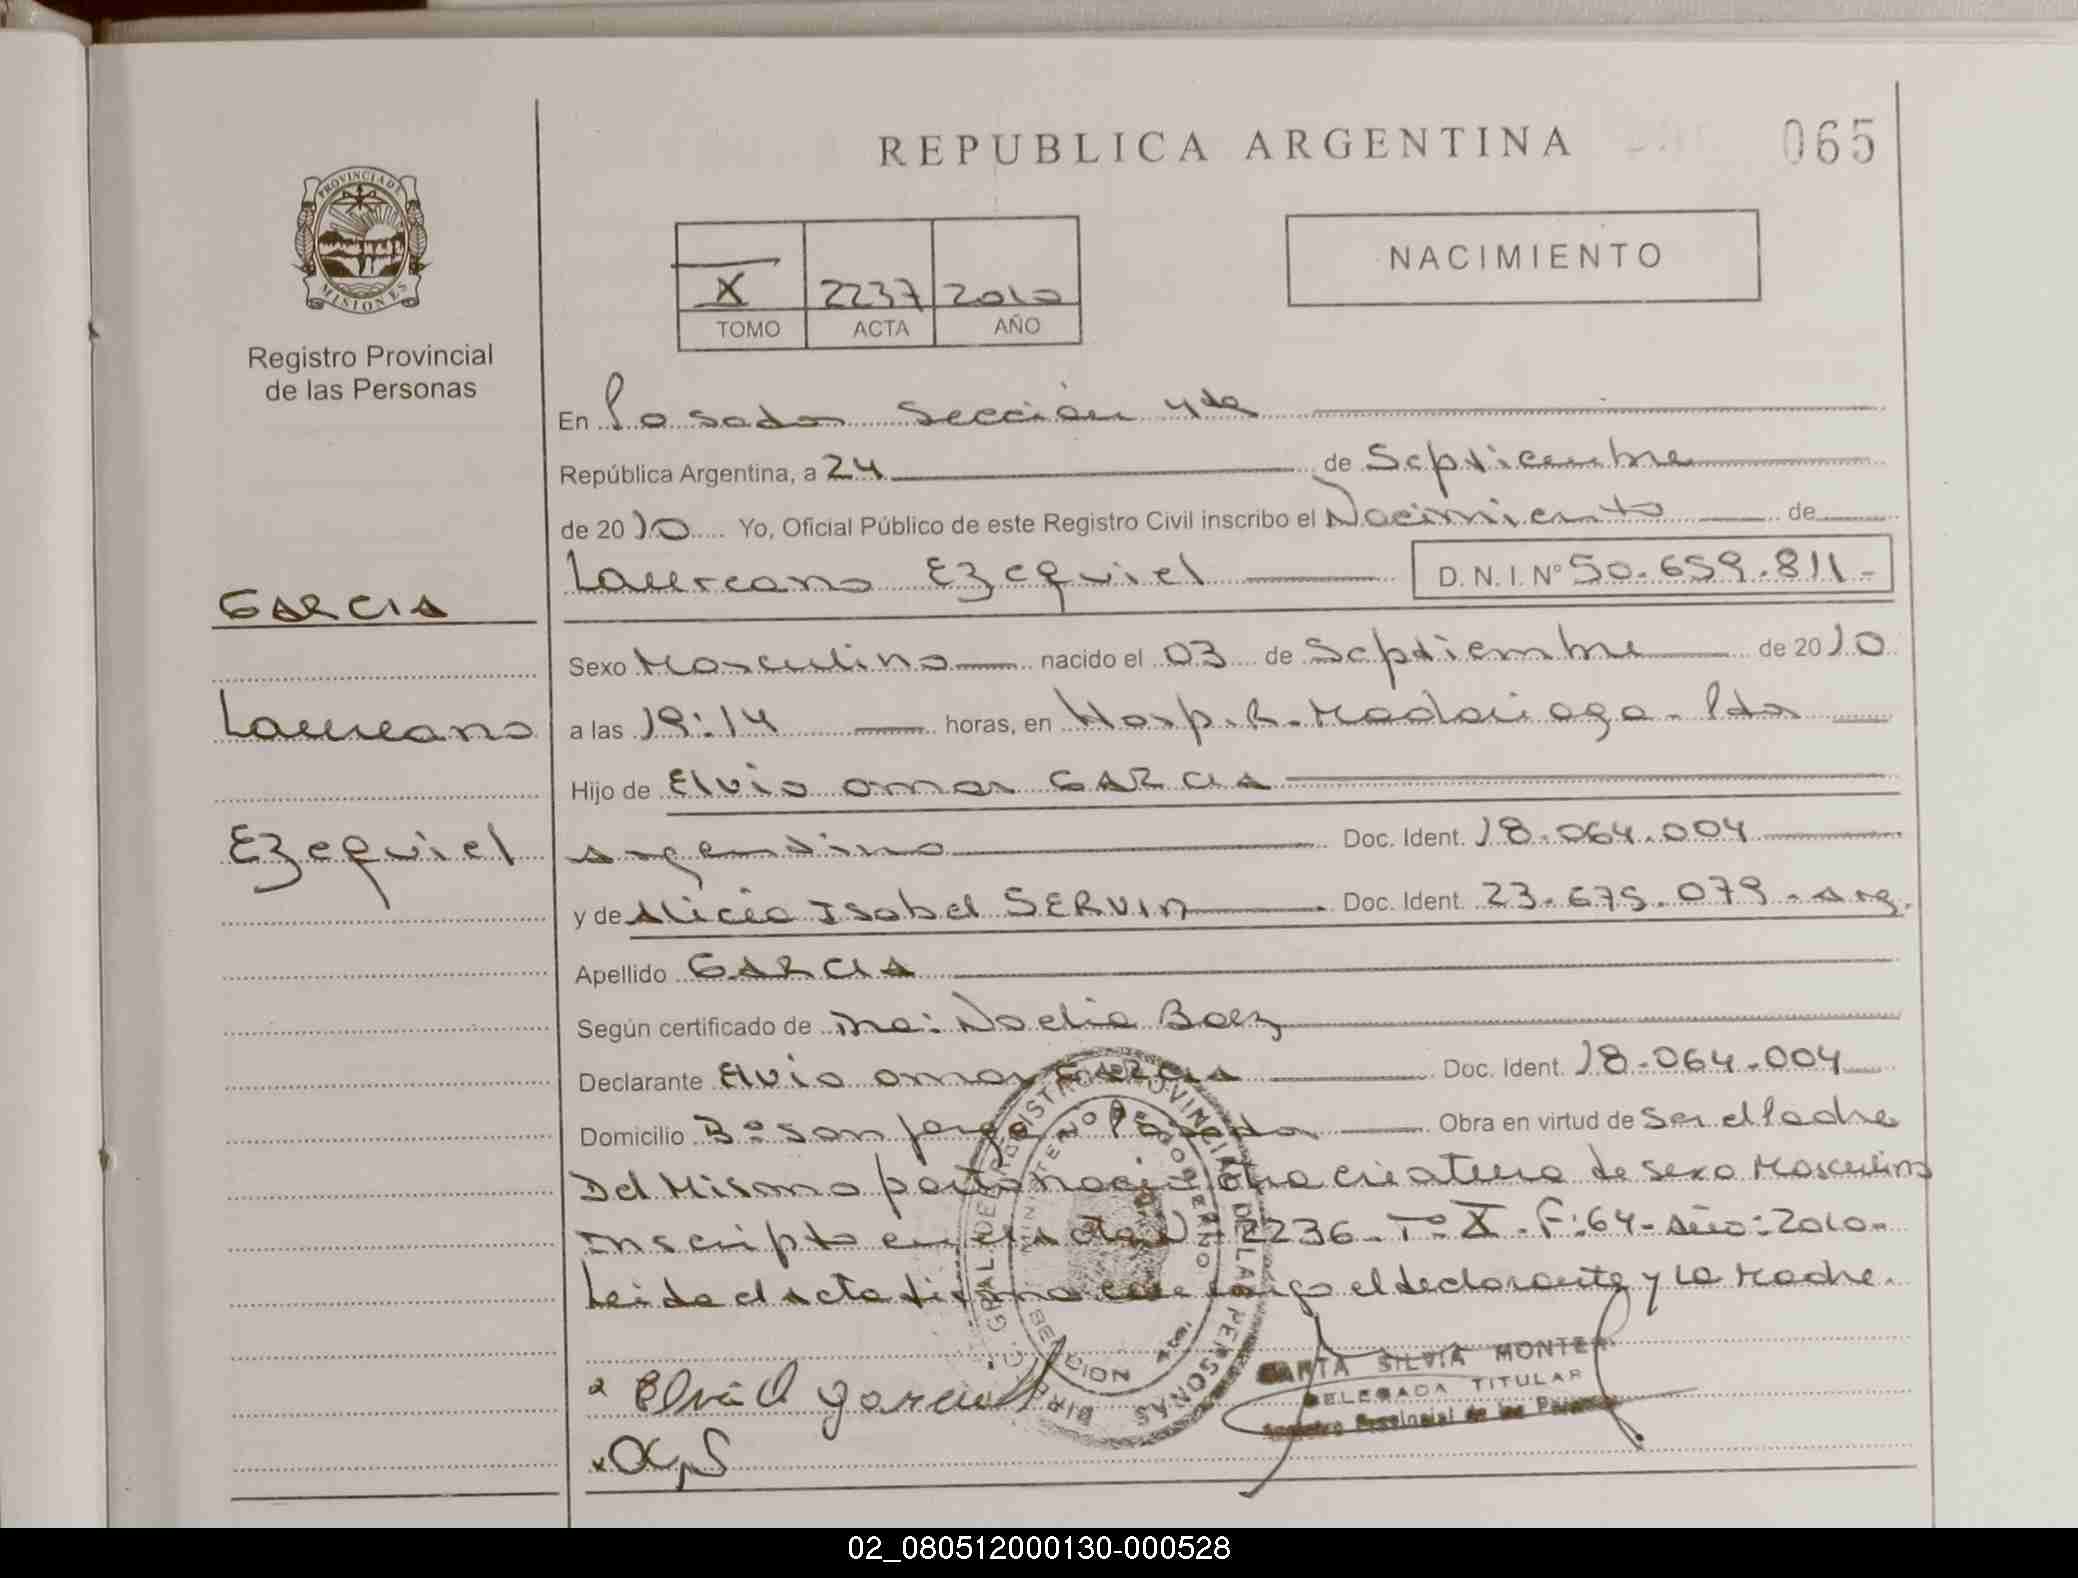 REPUBLICA ARGENTINA
065
PROVINCIA DE
MISIONES
Registro Provincial
de las Personas
X 2237 2010
TOMO ACTA AÑO
NACIMIENTO
En Posadas Sección 4ta
República Argentina, a 24 de Septiembre
de 2010 Yo, Oficial Público de este Registro Civil inscribo el Nacimiento de
Laureano Ezequiel D.N.I. Nº 50.659.811-
GARCIA
Laureano
Ezequiel
Sexo Masculino nacido el 03 de Septiembre de 2010
a las 19:14 horas, en Hosp. R. Madariaga - Pdas
Hijo de Elvio Omar GARCIA
Argentino Doc. Ident. 18.064.004
y de Alicia Isabel SERVIN Doc. Ident. 23.675.079 - Arg.
Apellido GARCIA
Según certificado de Dra: Noelia Baez
Declarante Elvio Omar GARCIA Doc. Ident. 18.064.004
Domicilio Bº San Jorge Posadas Obra en virtud de Ser el Padre
Del Mismo parto nació otra criatura de sexo Masculino
Inscripto en el acta Nº 2236 - Tº X - F: 64 - Año: 2010 -
Leida el acta firma conmigo el declarante y La Madre.
Elvio O Garcia
MARTA SILVIA MONTER
DELEGADA TITULAR
Registro Provincial de las Personas
02_080512000130-000528